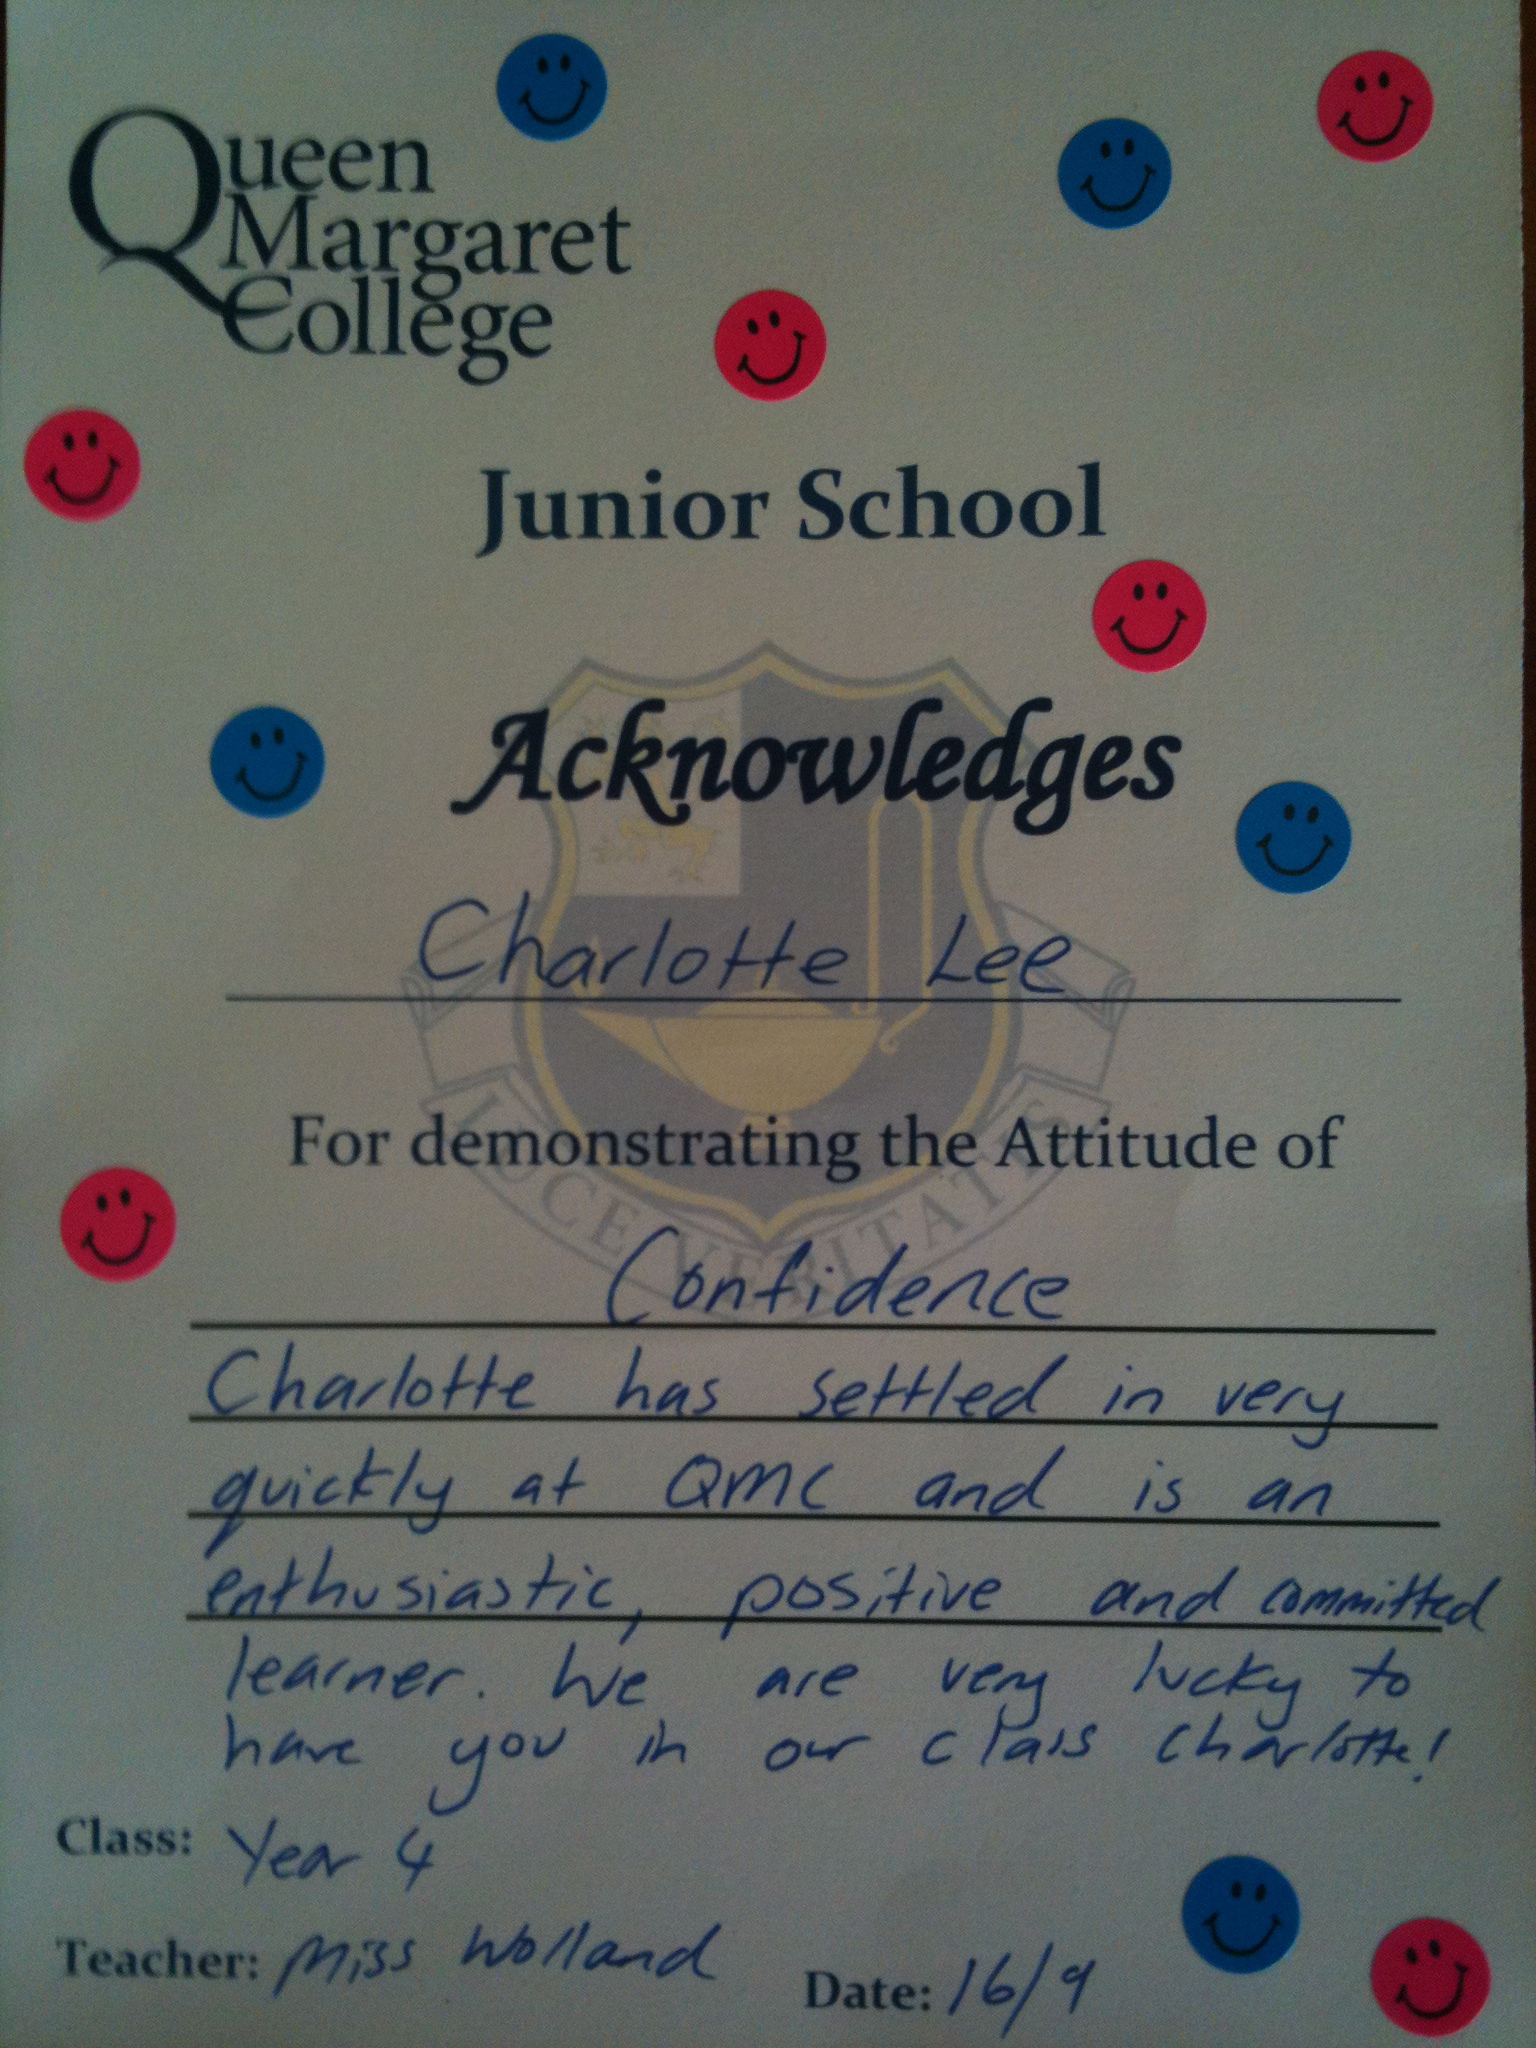 Queen
Margaret
College
Junior School
Acknowledges
Charlotte Lee
For demonstrating the Attitude of
LUCE VERITATIS
Confidence
Charlotte has settled in very
quickly at QMC and is an
enthusiastic, positive and committed
learner. We are very lucky to
have you in our class Charlotte!
Class: Year 4
Teacher: Miss Wolland
Date: 16/9